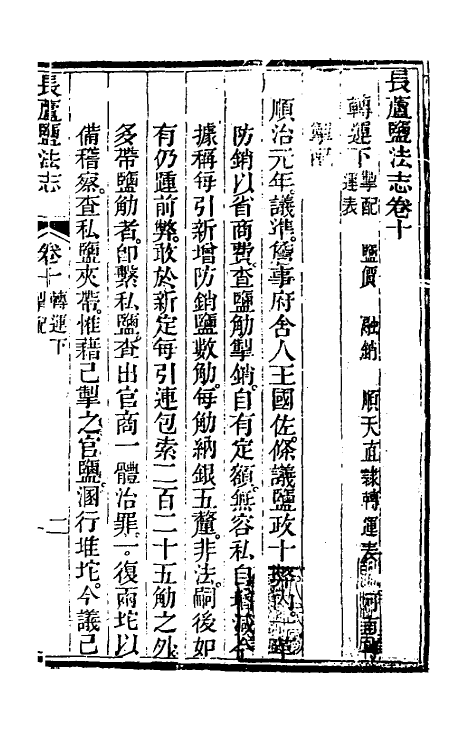 長蘆鹽法志卷十
轉運下 掣配 鹽價 融銷 順天直隸轉運表 河南轉
運表
掣配
順治元年議準詹事府舍人王國佐條議鹽政十 一
防銷以省商費查鹽觔掣銷自有定額無容私自增減今
據稱每引新增防銷鹽數觔每觔納銀五釐非法嗣後如
有仍踵前弊敢於新定每引連包索二百二十五觔之外
多帶鹽觔者卽繫私鹽查出官商一體治罪一復兩坨以
備稽察查私鹽夾帶惟藉已掣之官鹽溷行堆坨今議已
長蘆鹽法志 卷十 轉運下 掣配 一